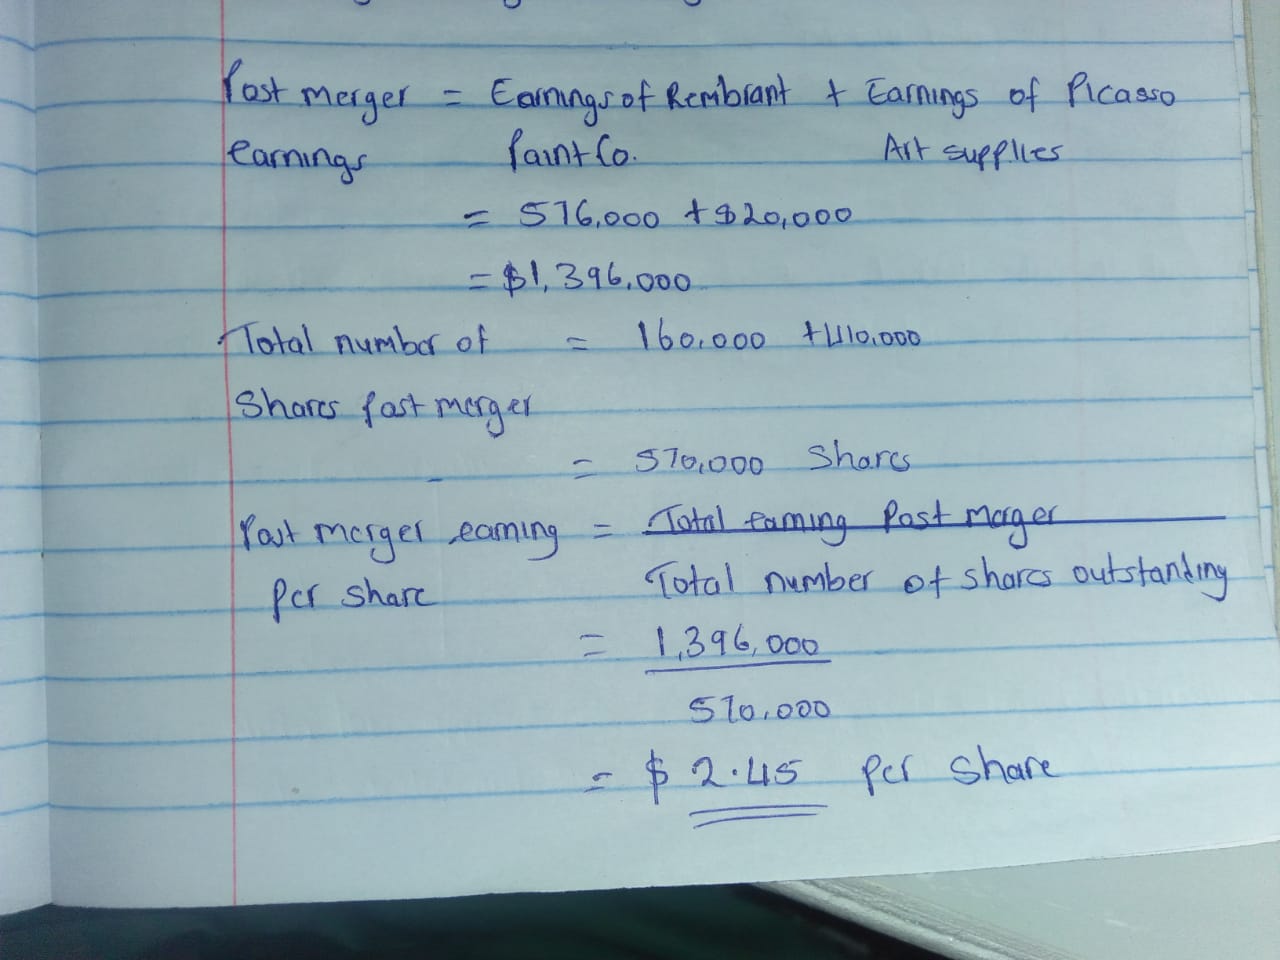 Post merger = Earnings of Rembrant + Earnings of Picasso
earnings Paint Co. Art supplies
= 576,000 + 820,000
= $1,396,000
Total number of = 160,000 + 410,000
Shares post merger
= 570,000 Shares
Post merger earning = Total earning Post merger
Per share Total number of shares outstanding
= 1,396,000
570,000
= $ 2.45 per share